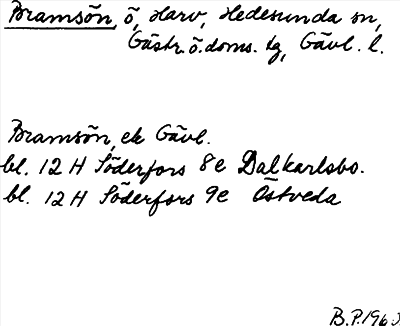 Bramsön, ö, Harv, Hedesunda sn,
Gästr. ö. doms. tg, Gävl. l.
Bramsön, ek Gävl.
bl. 12 H Söderfors 8e Dalkarlsbo.
bl. 12 H Söderfors 9e Östveda
B.P.196